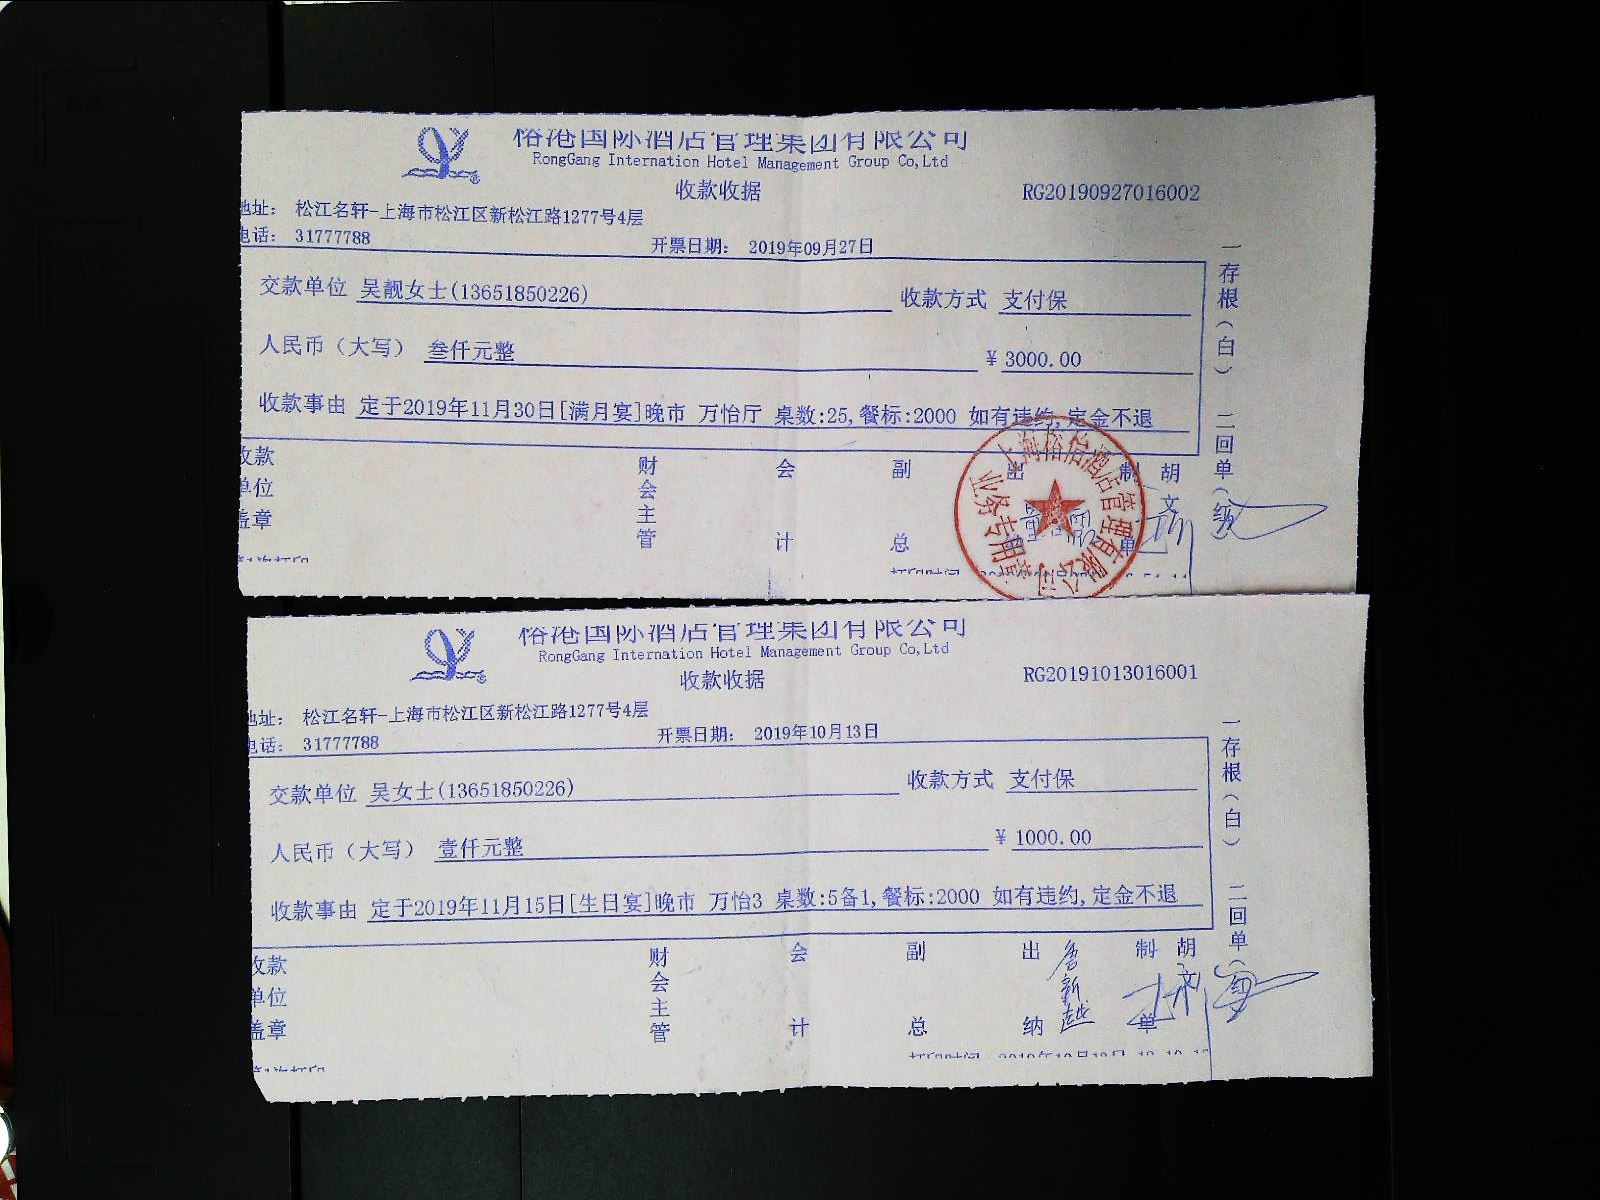 榕港国际酒店管理集团有限公司
RongGang Internation Hotel Management Group Co,Ltd
收款收据
RG20190927016002
地址： 松江名轩-上海市松江区新松江路1277号4层
电话： 31777788
开票日期： 2019年09月27日
交款单位 吴靓女士(13651850226) 收款方式 支付保
人民币（大写） 叁仟元整 ￥3000.00
收款事由 定于2019年11月30日[满月宴]晚市 万怡厅 桌数:25,餐标:2000 如有违约,定金不退
收款单位盖章 财会主管 会计 副总 出 制单 胡文
一存根(白) 二回单(红
上海榕怡酒店管理有限公司
业务专用章
打印时间
榕港国际酒店管理集团有限公司
RongGang Internation Hotel Management Group Co,Ltd
收款收据
RG20191013016001
地址： 松江名轩-上海市松江区新松江路1277号4层
电话： 31777788
开票日期： 2019年10月13日
交款单位 吴女士(13651850226) 收款方式 支付保
人民币（大写） 壹仟元整 ￥1000.00
收款事由 定于2019年11月15日[生日宴]晚市 万怡3 桌数:5备1,餐标:2000 如有违约,定金不退
收款单位盖章 财会主管 会计 副总 出纳 唐新越 制单 胡文
一存根(白) 二回单(
打印时间 2019年10月13日